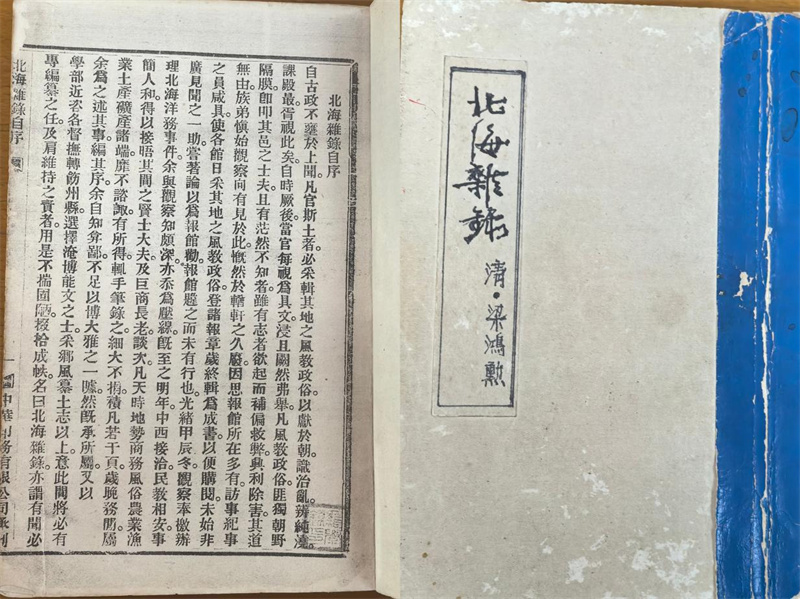 北海雜錄
清·梁鴻勲
北海雜錄自序
自古政不壅於上聞。凡官斯土者。必采輯其地之風敎政俗。以獻於朝。識治亂。辨純澆。
課殿最。胥視此矣。自時厥後。當官每視爲具文。浸且闕然弗舉。凡風敎政俗。匪獨朝野
隔膜。卽叩其邑之士夫。且有茫然不知者。雖有志者。欲起而補偏救弊。興利除害。其道
無由。族弟愼始觀察。向有見於此。慨然於輶軒之久廢。因思報館所在多有。訪事紀事
之員咸具。使各館日采其地之風敎政俗。登諸報章。歲終輯爲成書。以便購閱。未始非
廣見聞之一助。嘗著論以爲報館勸。報館韙之而未有行也。光緖甲辰冬。觀察奉檄辦
理北海洋務事件。余與觀察知頗深。亦忝爲壓線。旣至之明年。中西接洽。民敎相安。事
簡人和。得以接晤其間之賢士大夫。及巨商長老。談次凡天時地勢商務風俗農業漁
業土產礦產諸端。靡不諮諏。有所得。輒手筆錄之。細大不捐。積凡若干頁。歲晚務閒。屬
余爲之述其事。編其序。余自知弇鄙。不足以博大雅之一噱。然旣承所屬。又以
學部近咨各督撫。轉飭州縣。選擇淹博能文之士。采鄕風。纂土志以上。意此間將必有
專編纂之任。及肩維持之責者。用是不揣固陋。掇拾成帙。名曰北海雜錄。亦謂有聞必
北海雜錄自序
一
中華印務有限公司承刊